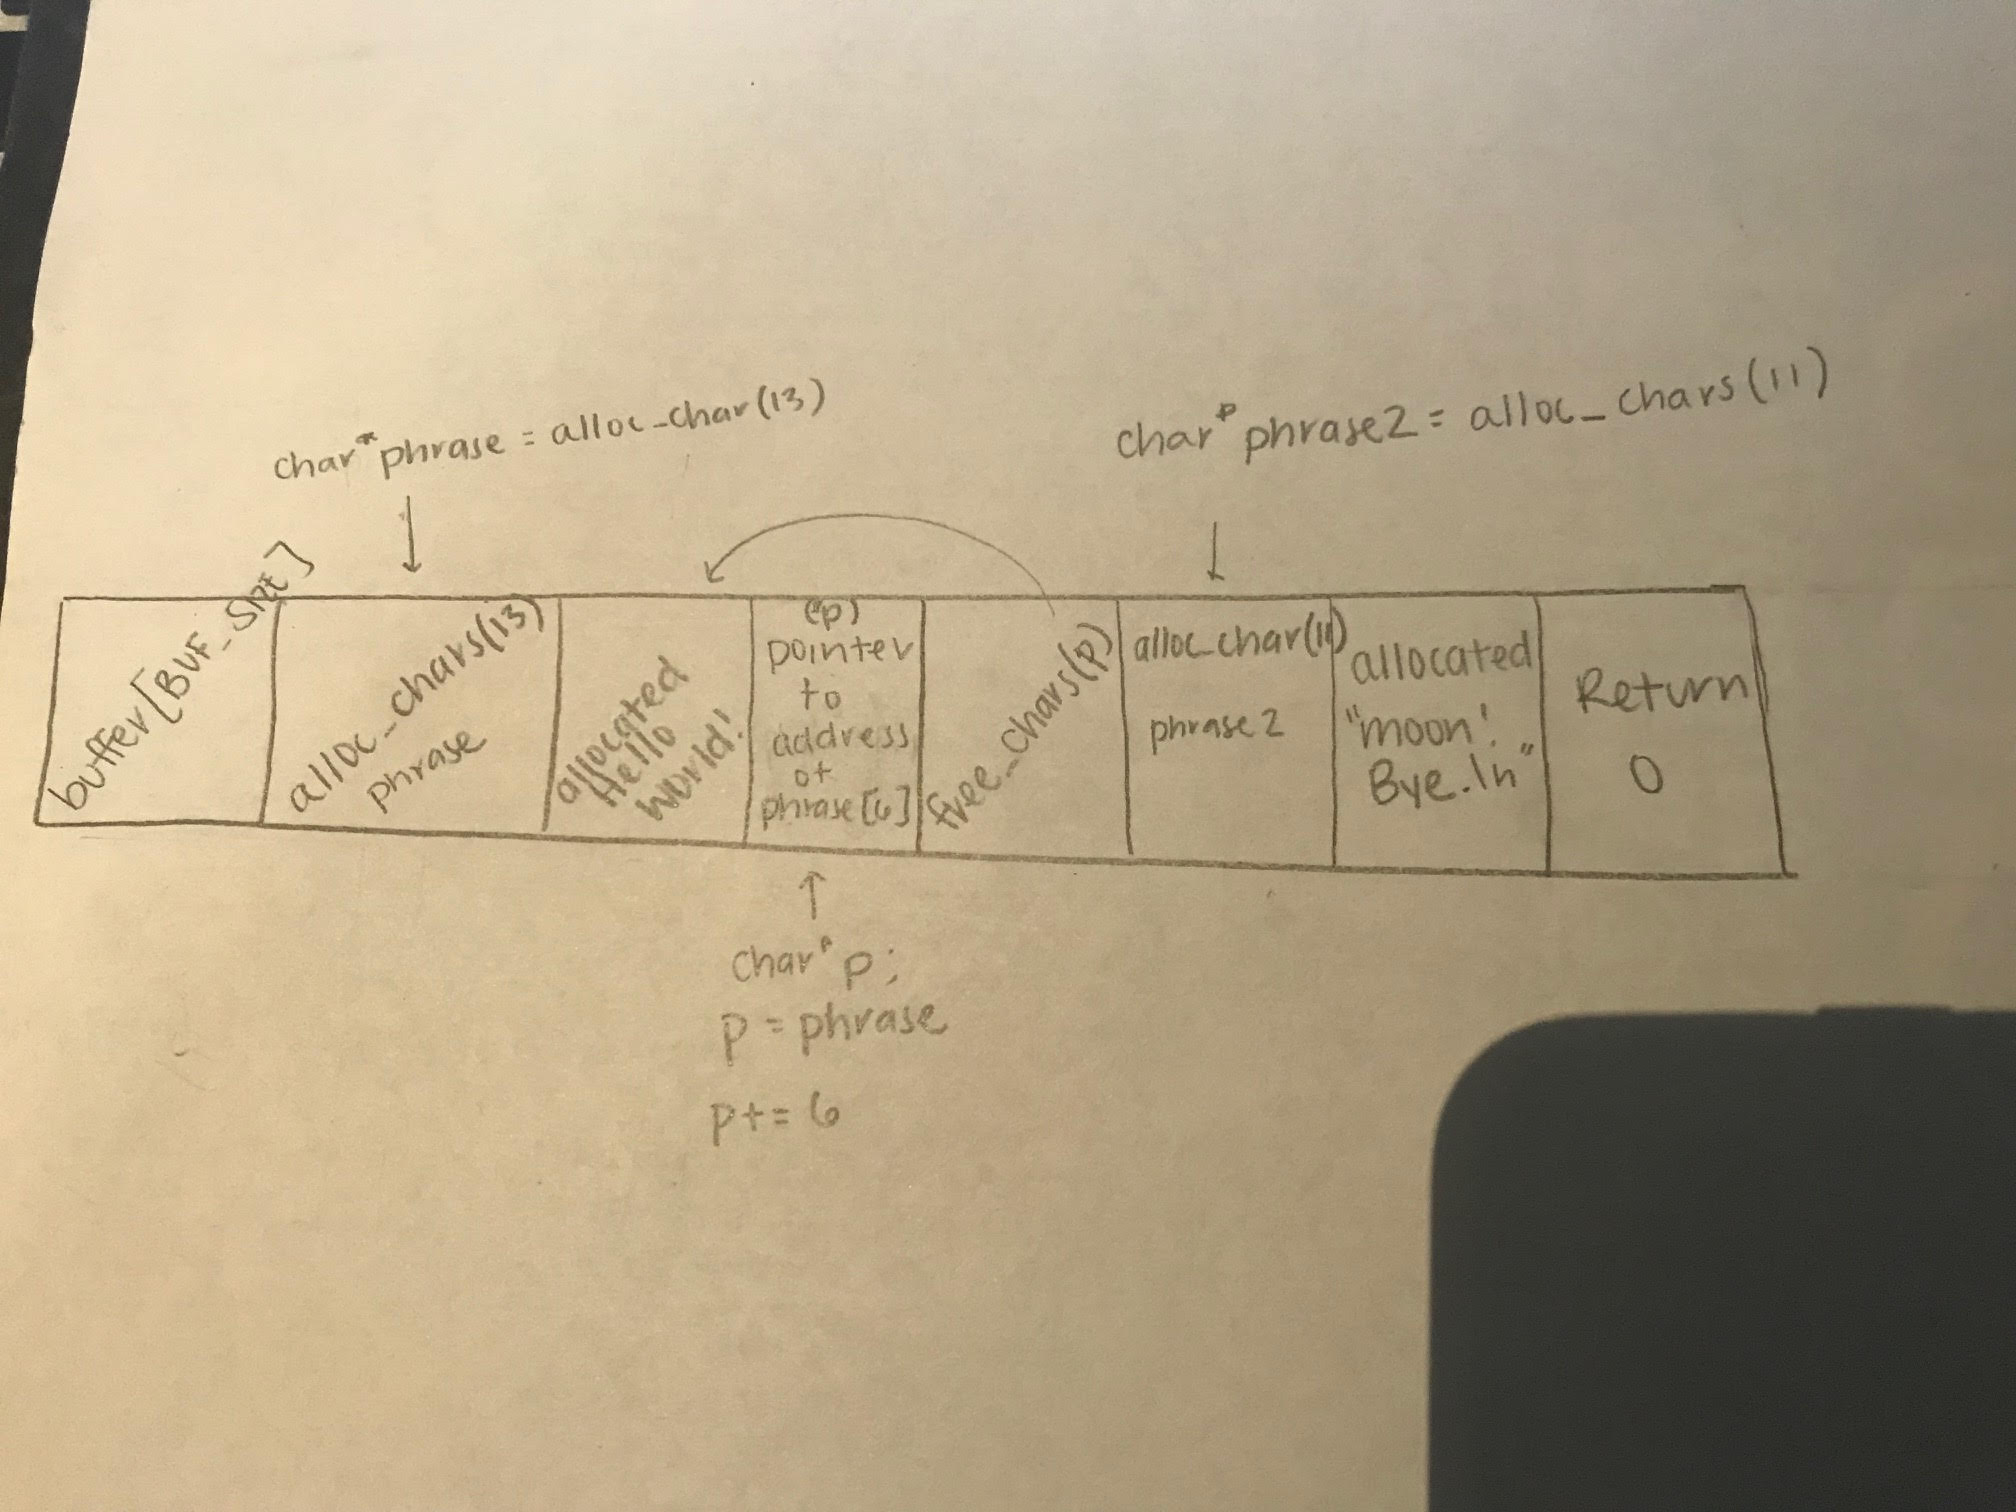 char* phrase = alloc_char(13)
char* phrase2 = alloc_chars(11)
buffer[BUF_SIZE]
alloc_chars(13)
phrase
allocated
Hello
World!
(p)
pointer
to
address
of
phrase[6]
free_chars(p)
alloc_char(11)
phrase2
allocated
"moon!
Bye.\n"
Return
0
char* p;
p = phrase
p += 6